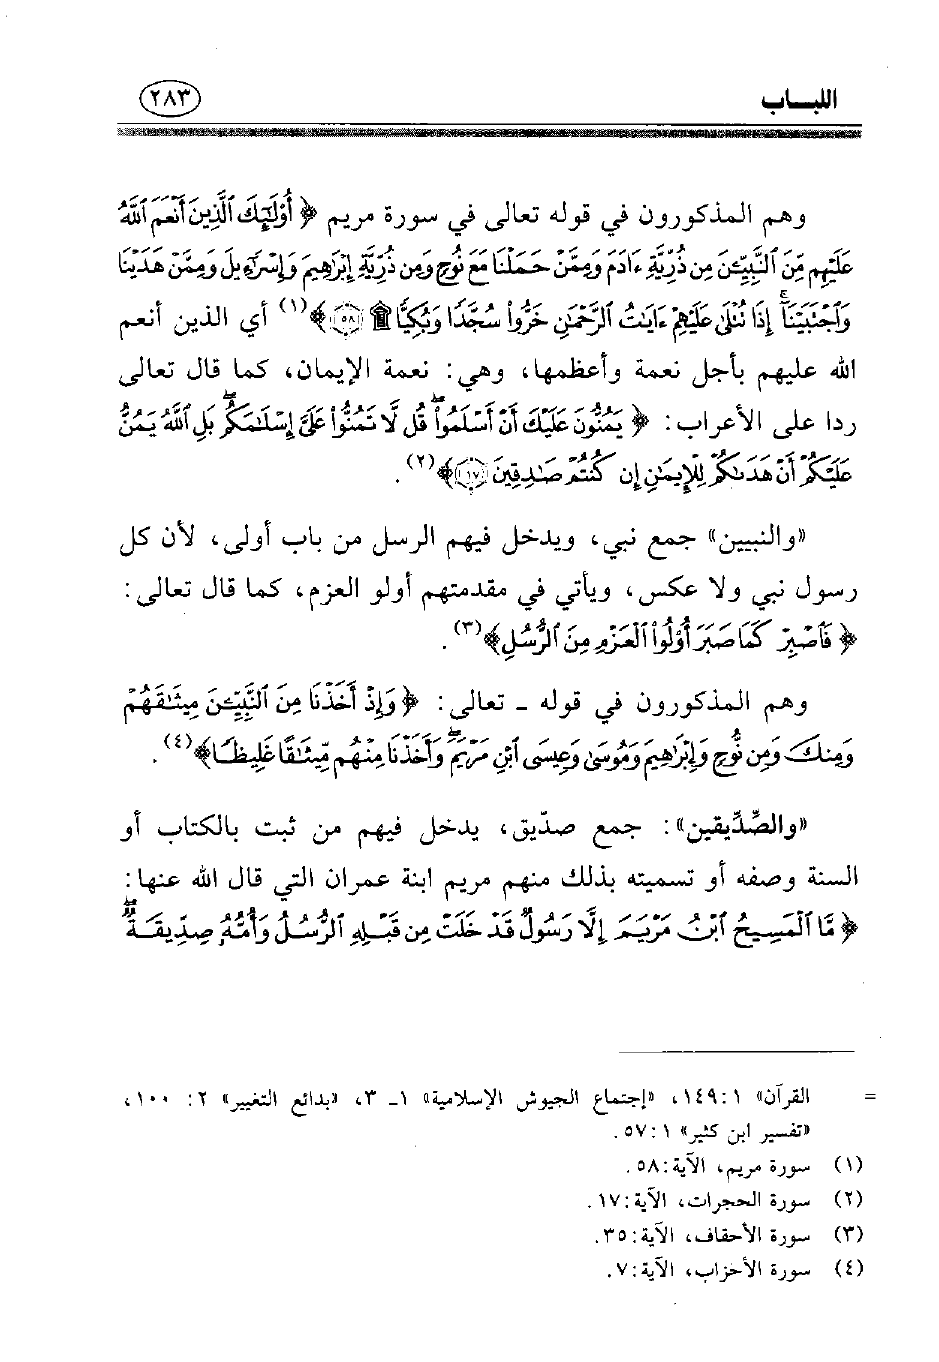 اللبـاب
٢٨٣
وهم المذكورون في قوله تعالى في سورة مريم ﴿ أُوْلَٰٓئِكَ ٱلَّذِينَ أَنْعَمَ ٱللَّهُ
عَلَيْهِم مِّنَ ٱلنَّبِيِّـۧنَ مِن ذُرِّيَّةِ ءَادَمَ وَمِمَّنْ حَمَلْنَا مَعَ نُوحٍ وَمِن ذُرِّيَّةِ إِبْرَٰهِيمَ وَإِسْرَٰٓءِيلَ وَمِمَّنْ هَدَيْنَا
وَٱجْتَبَيْنَآ إِذَا تُتْلَىٰ عَلَيْهِمْ ءَايَٰتُ ٱلرَّحْمَٰنِ خَرُّوا۟ سُجَّدًا وَبُكِيًّا ۩ ﴿٥٨﴾ ﴾(١) أي الذين أنعم
الله عليهم بأجل نعمة وأعظمها، وهي: نعمة الإيمان، كما قال تعالى
ردا على الأعراب: ﴿ يَمُنُّونَ عَلَيْكَ أَنْ أَسْلَمُوا۟ۖ قُل لَّا تَمُنُّوا۟ عَلَىَّ إِسْلَٰمَكُمۖ بَلِ ٱللَّهُ يَمُنُّ
عَلَيْكُمْ أَنْ هَدَىٰكُمْ لِلْإِيمَٰنِ إِن كُنتُمْ صَٰدِقِينَ ﴿١٧﴾ ﴾(٢).
«والنبيين» جمع نبي، ويدخل فيهم الرسل من باب أولى، لأن كل
رسول نبي ولا عكس، ويأتي في مقدمتهم أولو العزم، كما قال تعالى:
﴿ فَٱصْبِرْ كَمَا صَبَرَ أُو۟لُوا۟ ٱلْعَزْمِ مِنَ ٱلرُّسُلِ ﴾(٣).
وهم المذكورون في قوله ـ تعالى: ﴿ وَإِذْ أَخَذْنَا مِنَ ٱلنَّبِيِّـۧنَ مِيثَٰقَهُمْ
وَمِنكَ وَمِن نُّوحٍ وَإِبْرَٰهِيمَ وَمُوسَىٰ وَعِيسَى ٱبْنِ مَرْيَمَۖ وَأَخَذْنَا مِنْهُم مِّيثَٰقًا غَلِيظًا ﴾(٤).
«والصِّدِّيقين»: جمع صدّيق، يدخل فيهم من ثبت بالكتاب أو
السنة وصفه أو تسميته بذلك منهم مريم ابنة عمران التي قال الله عنها:
﴿ مَّا ٱلْمَسِيحُ ٱبْنُ مَرْيَمَ إِلَّا رَسُولٌ قَدْ خَلَتْ مِن قَبْلِهِ ٱلرُّسُلُ وَأُمُّهُۥ صِدِّيقَةٌۖ
= القرآن» ١: ١٤٩، «إجتماع الجيوش الإسلامية» ١ـ ٣، «بدائع التغيير» ٢: ١٠٠،
«تفسير ابن كثير» ١: ٥٧.
(١) سورة مريم، الآية: ٥٨.
(٢) سورة الحجرات، الآية: ١٧.
(٣) سورة الأحقاف، الآية: ٣٥.
(٤) سورة الأحزاب، الآية: ٧.